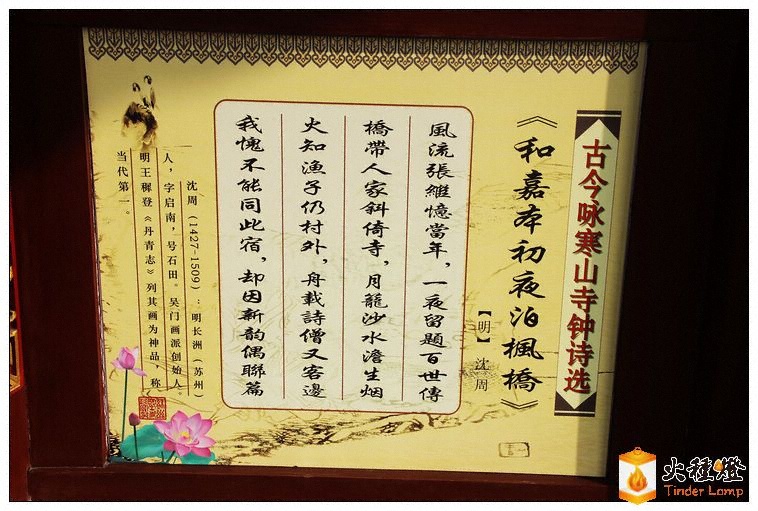 古今咏寒山寺钟诗选
《和嘉本初夜泊楓橋》
【明】 沈周
風流張繼憶當年，一夜留題百世傳
橋帶人家斜倚寺，月籠沙水澹生烟
火知漁子仍村外，舟載詩僧又客邊
我愧不能同此宿，却因新韵偶聯篇
沈周（1427-1509）：明长洲（苏州）
人，字启南，号石田。吴门画派创始人。
明王穉登《丹青志》列其画为神品，称
当代第一。
火種燈
Tinder Lamp